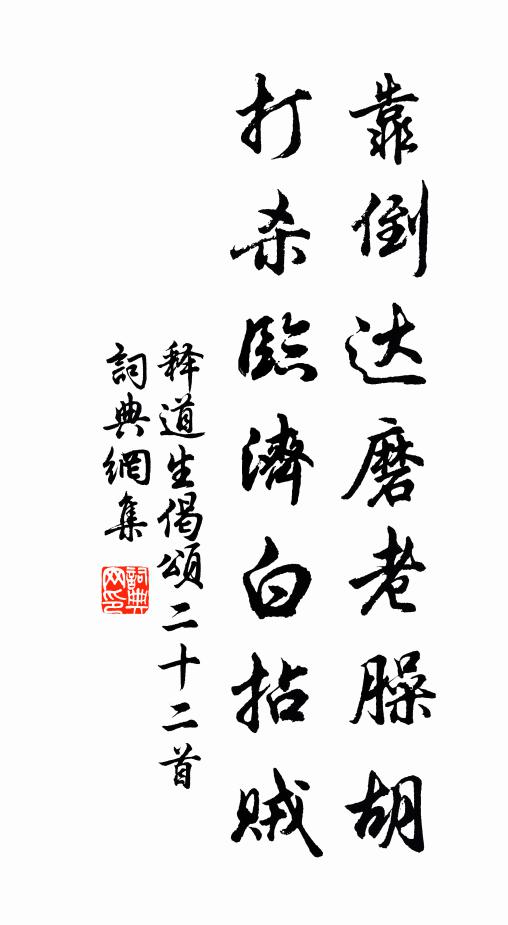 靠倒达磨老臊胡
打杀臨濟白拈賊
释道生偈頌二十二首
詞典網集
詞典网印